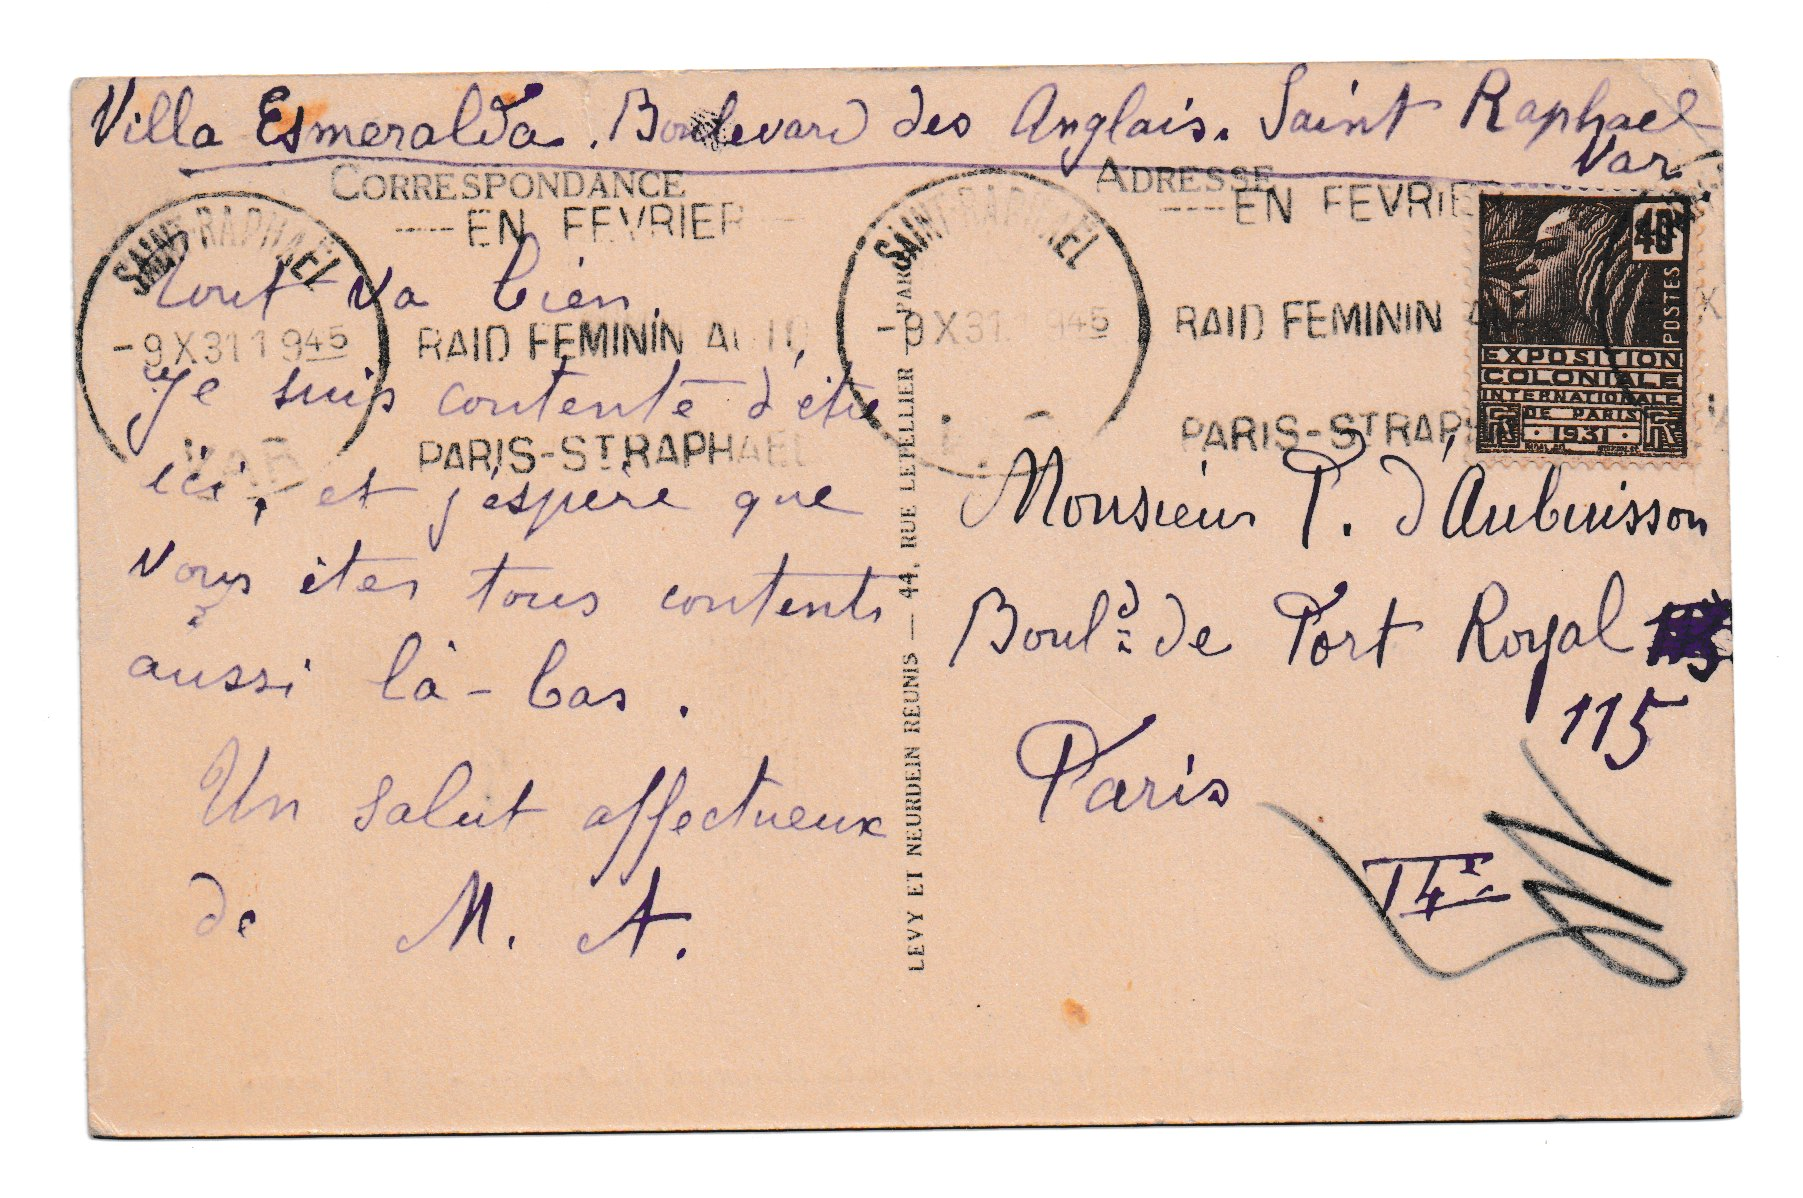 Villa Esmeralda. Boulevard des Anglais. Saint Raphael
Var
CORRESPONDANCE
SAINT-RAPHAËL
-9 X 31 1945
VAR
EN FEVRIER
RAID FEMININ
PARIS-ST RAPHAEL
Tout va bien.
Je suis contente d'être
ici, et j'espère que
vous êtes tous contents
aussi là-bas.
Un salut affectueux
de M. A.
LEVY ET NEURDEIN REUNIS — 44, RUE LETELLIER — PARIS
ADRESSE
SAINT-RAPHAËL
-9 X 31 1945
EN FEVRIE
RAID FEMININ
PARIS-ST RAP
40c
POSTES
EXPOSITION
COLONIALE
INTERNATIONALE
DE PARIS
· 1931 ·
Monsieur P. d'Aubuisson
Boul.d de Port Royal
115
Paris
14e